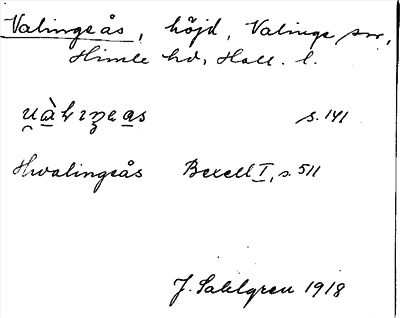 Valingeås, höjd, Valinge sn,
Himle hd, Hall. l.
s. 141
Hwalingeås Bexell I, s. 511
J. Sahlgren 1918